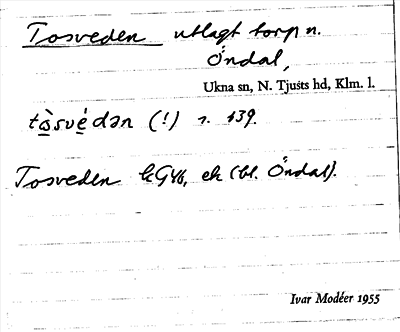 Tosveden utlagt torp n.
Öndal,
Ukna sn, N. Tjusts hd, Klm. l.
tɷ̀svédən (!) n. 439.
Tosveden G46, ek (bl. Öndal).
Ivar Modéer 1955